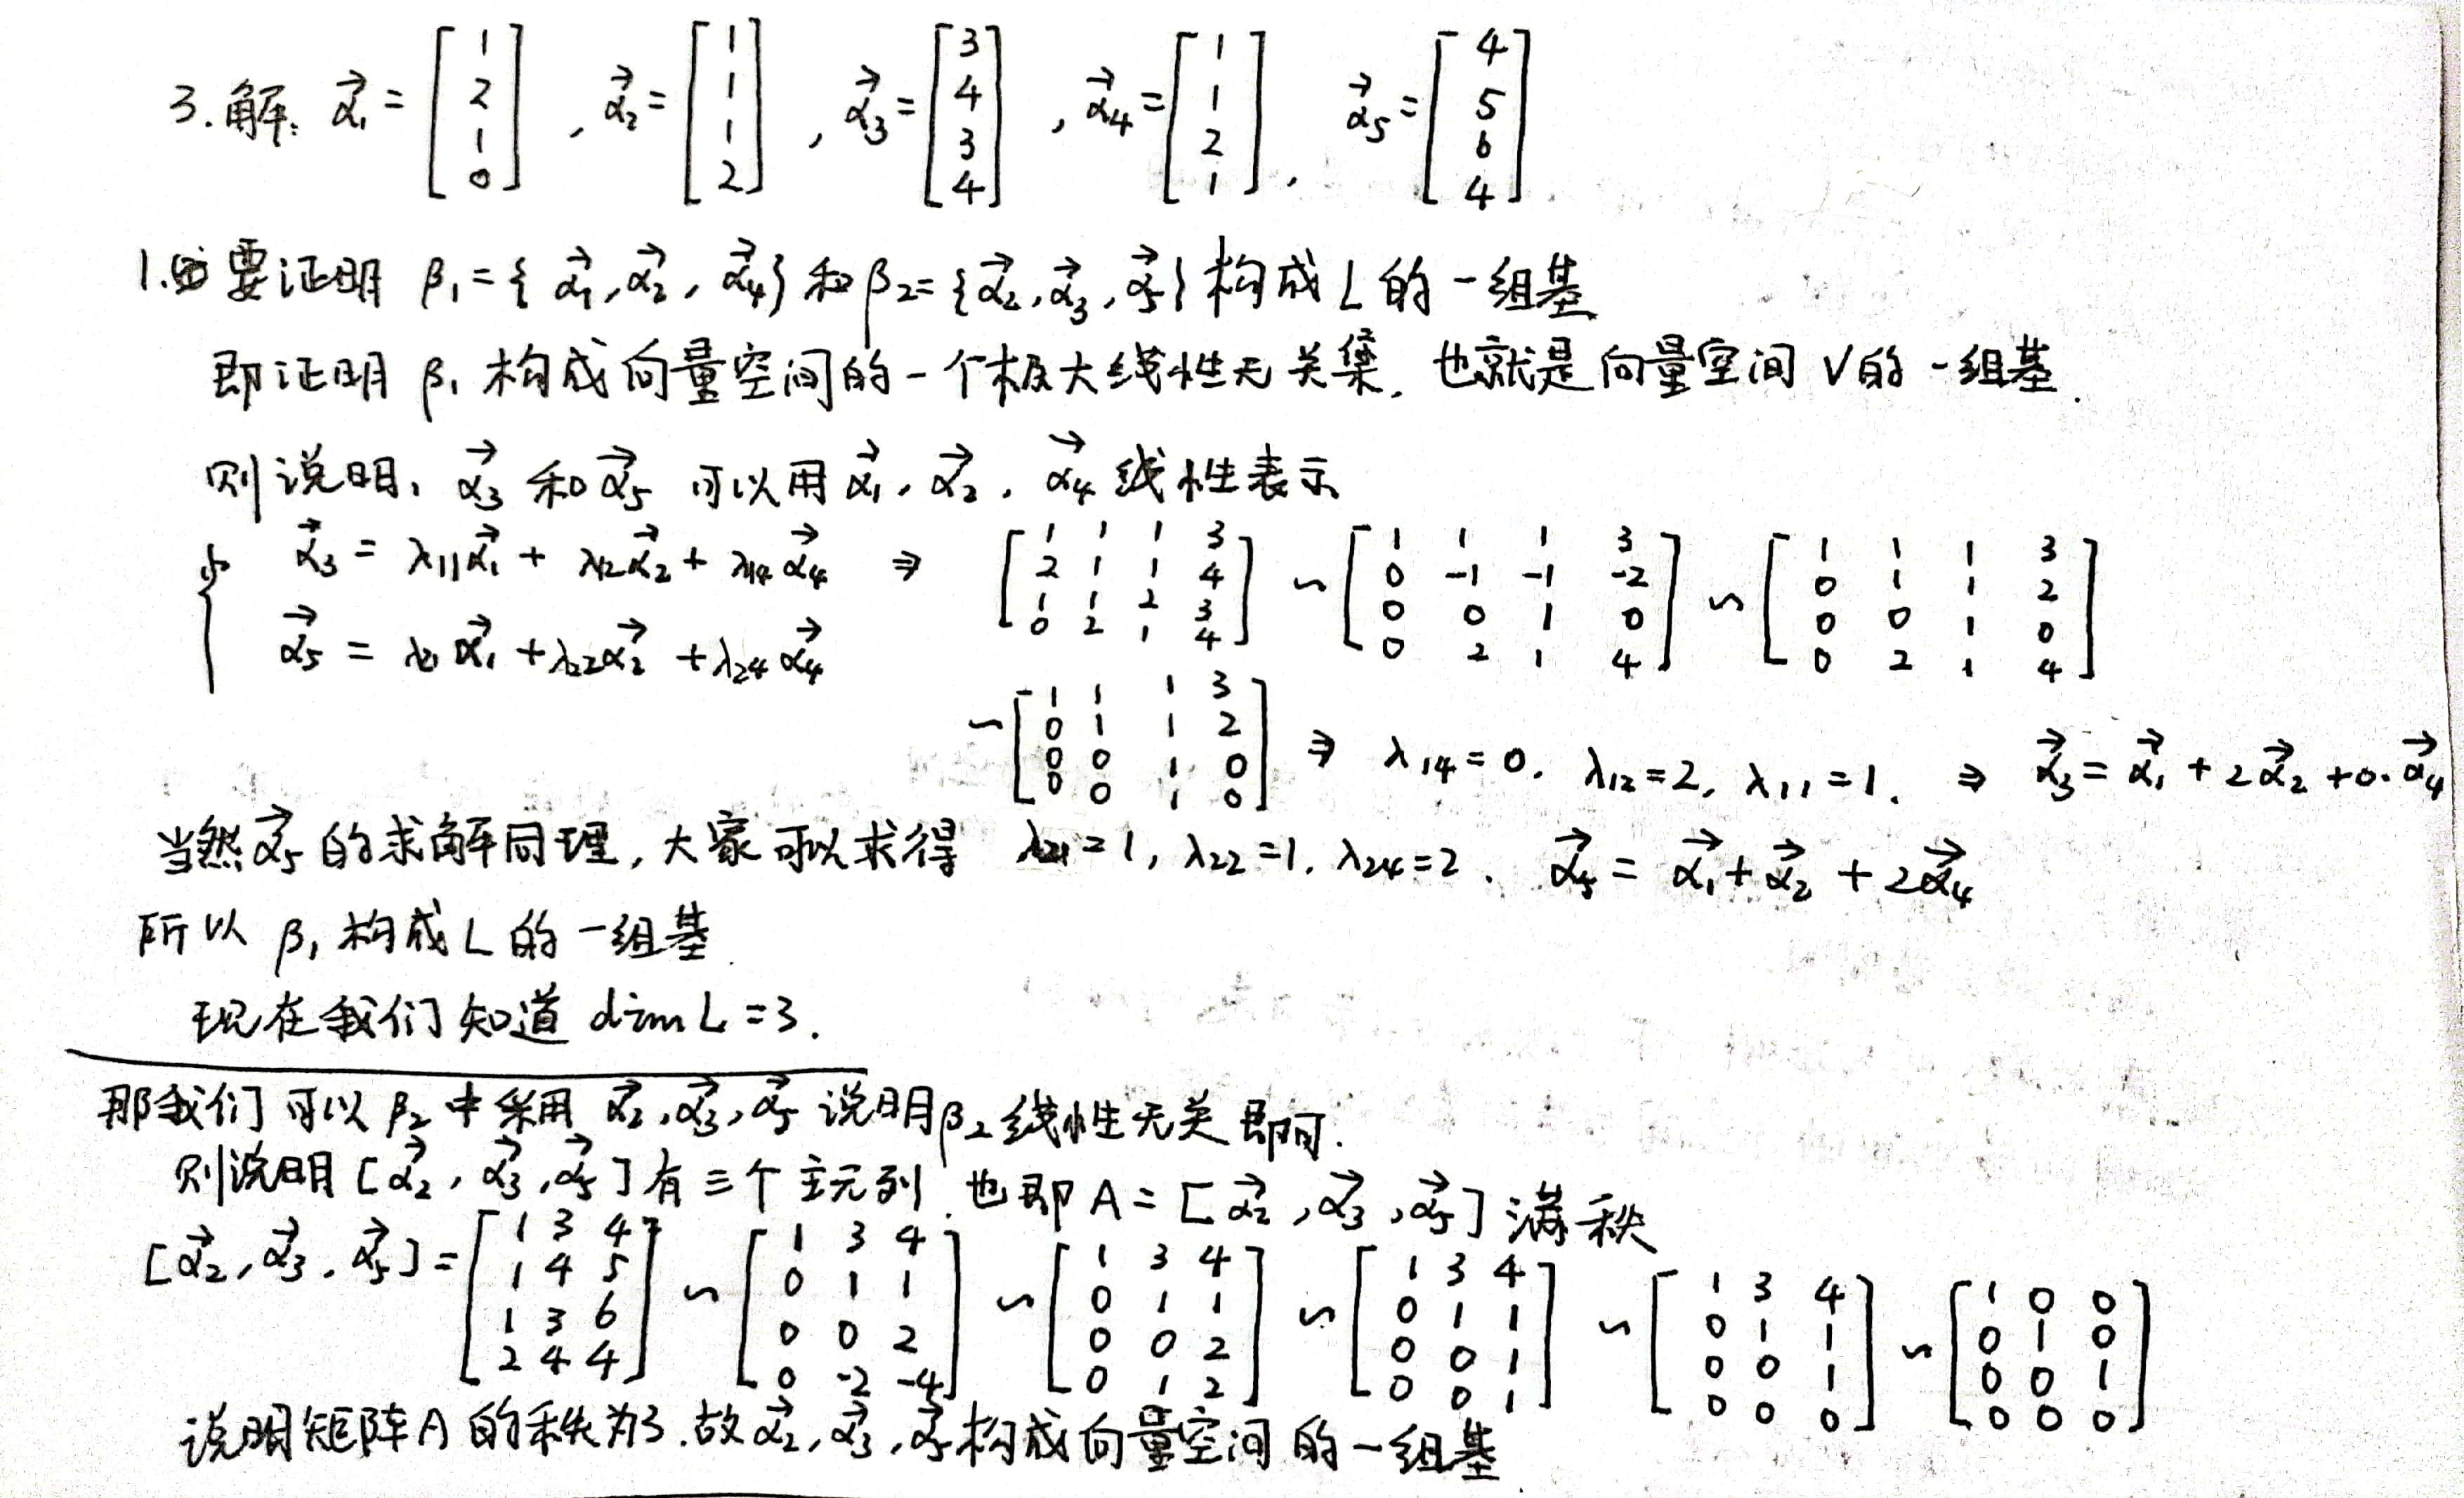 3.解: α⃗₁ = [1 2 1 0], α⃗₂ = [1 1 1 2], α⃗₃ = [3 4 3 4], α⃗₄ = [1 1 2 1], α⃗₅ = [4 5 6 4]
1. 要证明 β₁ = {α⃗₁, α⃗₂, α⃗₄} 和 β₂ = {α⃗₂, α⃗₃, α⃗₅} 构成 L 的一组基
即证明 β₁ 构成向量空间的一个极大线性无关集, 也就是向量空间 V 的一组基.
则说明, α⃗₃ 和 α⃗₅ 可以用 α⃗₁, α⃗₂, α⃗₄ 线性表示
α⃗₃ = λ₁₁α⃗₁ + λ₁₂α⃗₂ + λ₁₄α⃗₄ ⇒ [1 1 1 3; 2 1 1 4; 1 1 2 3; 0 2 1 4] ~ [1 1 1 3; 0 -1 -1 -2; 0 0 1 0; 0 2 1 4] ~ [1 1 1 3; 0 1 1 2; 0 0 1 0; 0 2 1 4]
α⃗₅ = λ₂₁α⃗₁ + λ₂₂α⃗₂ + λ₂₄α⃗₄
~ [1 1 1 3; 0 1 1 2; 0 0 1 0; 0 0 1 0] ⇒ λ₁₄ = 0, λ₁₂ = 2, λ₁₁ = 1. ⇒ α⃗₃ = α⃗₁ + 2α⃗₂ + 0·α⃗₄
当然 α⃗₅ 的求解同理, 大家可以求得 λ₂₁ = 1, λ₂₂ = 1, λ₂₄ = 2. α⃗₅ = α⃗₁ + α⃗₂ + 2α⃗₄
所以 β₁ 构成 L 的一组基.
现在我们知道 dim L = 3.
那我们可以 β₂ 中采用 α⃗₂, α⃗₃, α⃗₅ 说明 β₂ 线性无关即可.
则说明 [α⃗₂, α⃗₃, α⃗₅] 有三个主元列. 也即 A = [α⃗₂, α⃗₃, α⃗₅] 满秩
[α⃗₂, α⃗₃, α⃗₅] = [1 3 4; 1 4 5; 1 3 6; 2 4 4] ~ [1 3 4; 0 1 1; 0 0 2; 0 -2 -4] ~ [1 3 4; 0 1 1; 0 0 2; 0 1 2] ~ [1 3 4; 0 1 1; 0 0 1; 0 0 1] ~ [1 3 4; 0 1 1; 0 0 1; 0 0 0] ~ [1 0 0; 0 1 0; 0 0 1; 0 0 0]
说明矩阵 A 的秩为3. 故 α⃗₂, α⃗₃, α⃗₅ 构成向量空间的一组基.